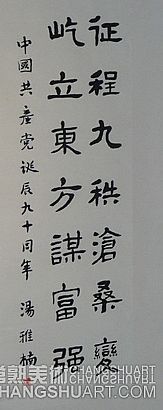 征程九秩滄桑變
屹立東方謀富强
中國共產党誕辰九十周年 湯雅楠
常熟美術
CHANGSHUART
HANGSHUART.COM